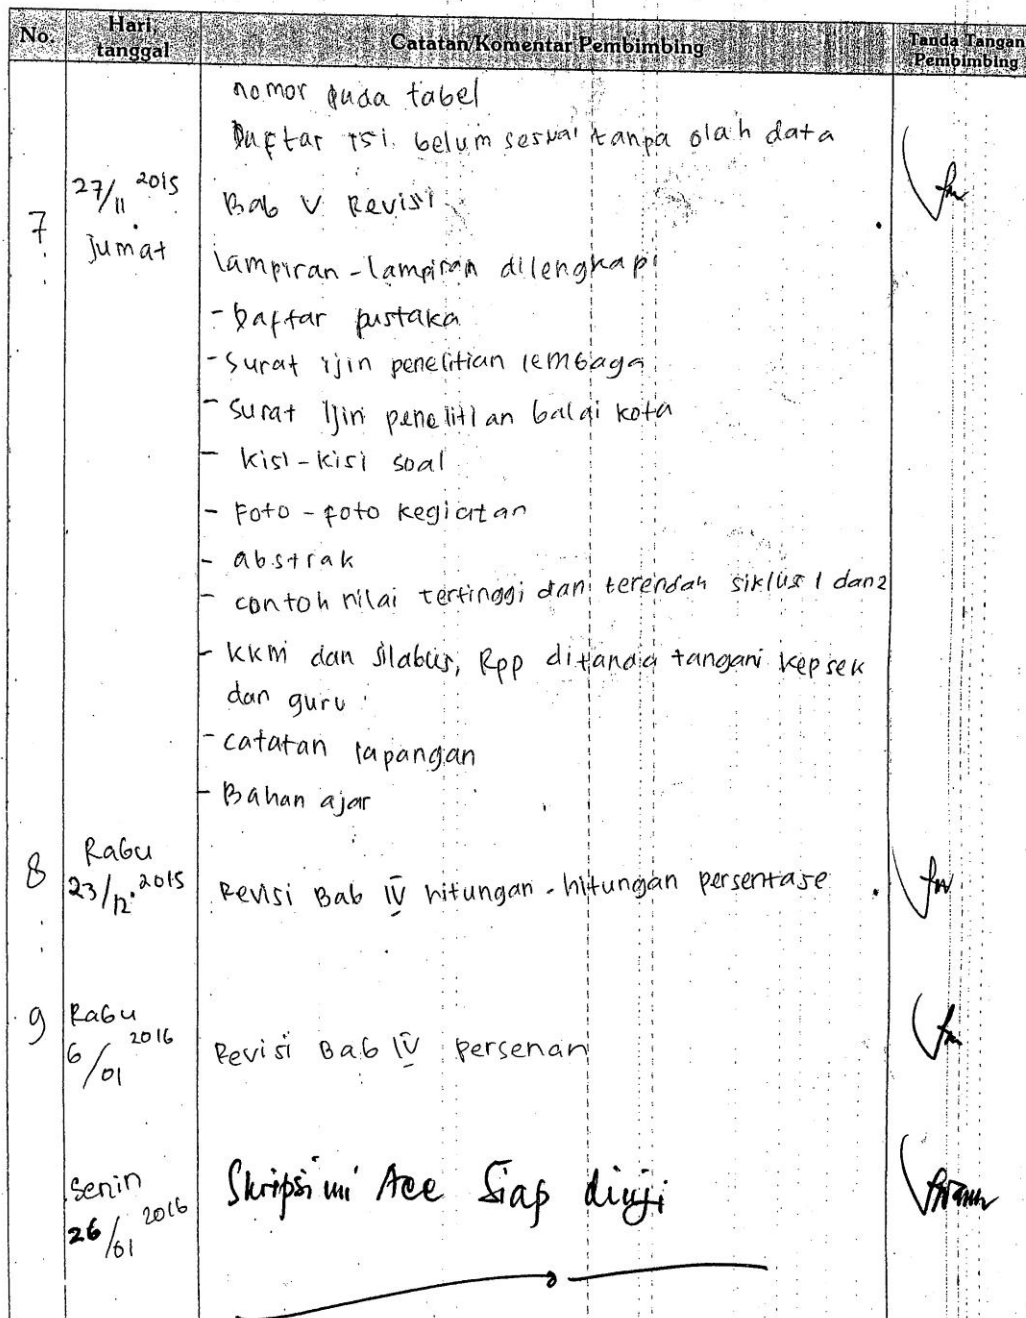 No. Hari, tanggal Catatan/Komentar Pembimbing Tanda Tangan Pembimbing
nomor pada tabel
Daftar isi belum sesuai tanpa olah data
7 27/11 2015 Jumat Bab V Revisi
lampiran-lampiran dilengkapi
- Daftar pustaka
- Surat ijin penelitian lembaga
- Surat Ijin penelitian balai kota
- Kisi-Kisi soal
- Foto-foto kegiatan
- abstrak
- contoh nilai tertinggi dan terendah siklus 1 dan 2
- KKM dan Silabus, Rpp ditanda tangani kepsek
dan guru
- catatan lapangan
- Bahan ajar
8 Rabu 23/12 2015 Revisi Bab IV hitungan-hitungan persentase
9 Rabu 6/01 2016 Revisi Bab IV persenan
Senin 26/01 2016 Skripsi ini Acc Siap diuji